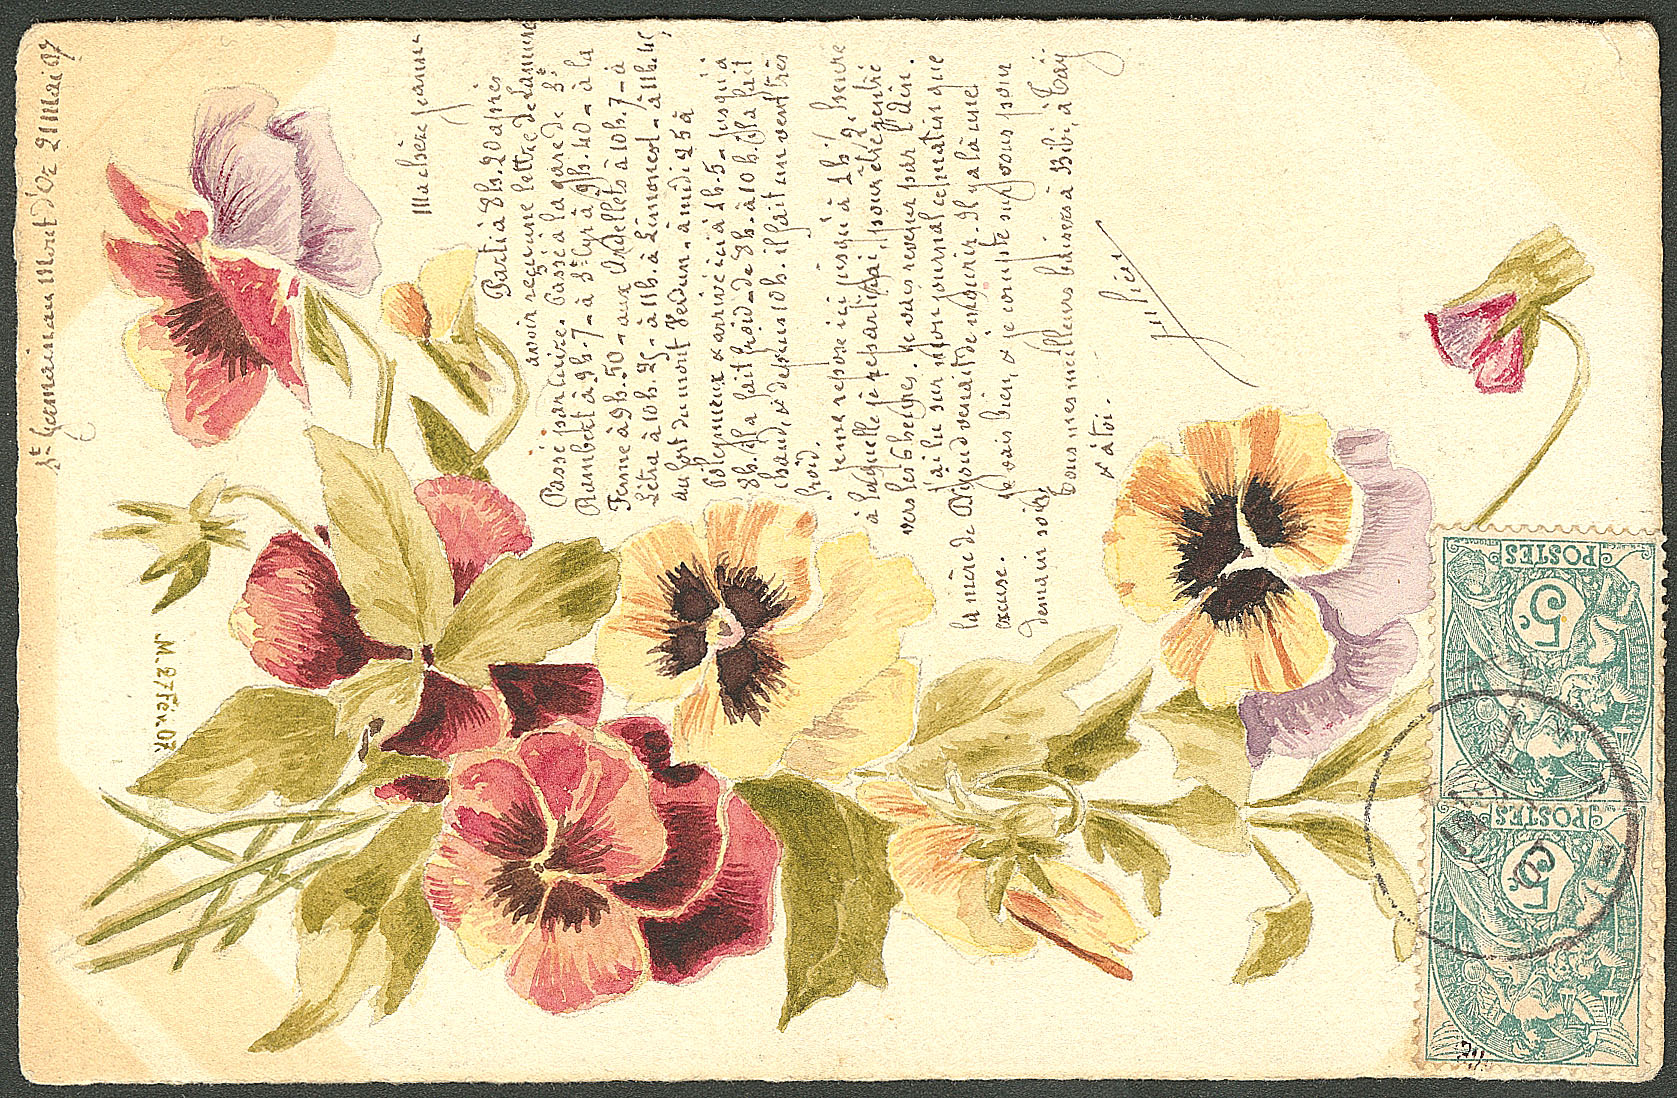 St Germain au Mont d'Or 21 Mai 07
Ma chère Jeanne
Parti à 8h.20 après
avoir reçu une lettre de Lamure
Passé par Luire. Passé à la gare de St
Rambert à 9h.7 - à St Cyr à 9h.40 - à la
Ferme à 9h.50 - aux Andellets à 10h.7 - à
Letra à 10h.25 - à 11h. à Limonest - à 11h.45,
au fort du mont Verdun - à midi 25 à
Poleymieux & arrivé ici à 1h.5 - Jusqu'à
8h. il a fait froid - de 8h. à 10h. il a fait
chaud, & depuis 10h. il fait un vent très
froid.
Je me repose ici jusqu'à 2h 1/2, heure
à laquelle je repartirai pour être rentré
vers les 6 heures. Je vais revenir par l'Ain.
J'ai lu sur mon journal ce matin que
la mère de Pigoud venait de mourir. Il y a là une
excuse.
Je vais bien, & je compte sur vous pour
demain soir.
Tous mes meilleurs baisers à Bibi, à Tây
& à toi.
M. 27 Fév. 07
POSTES
5c
POSTES
5c